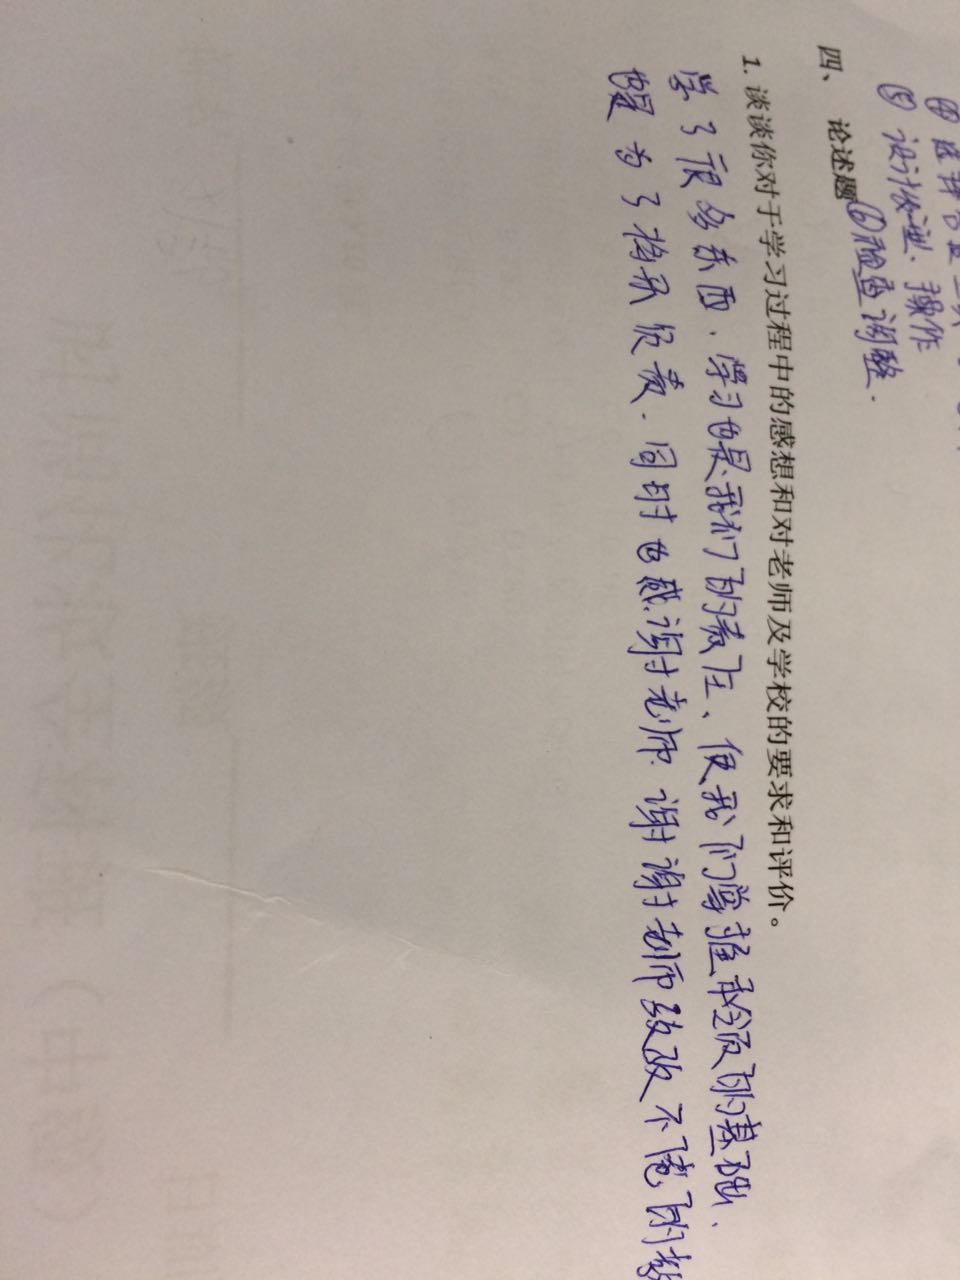 ④选择
⑤设计发型、操作
四、 论述题 ⑥检查调整.
1. 谈谈你对于学习过程中的感想和对老师及学校的要求和评价。
学了很多东西、学习也是我们的责任、使我们掌握的基础.
也是为了将来负责. 同时也感谢老师. 谢谢老师孜孜不倦的教